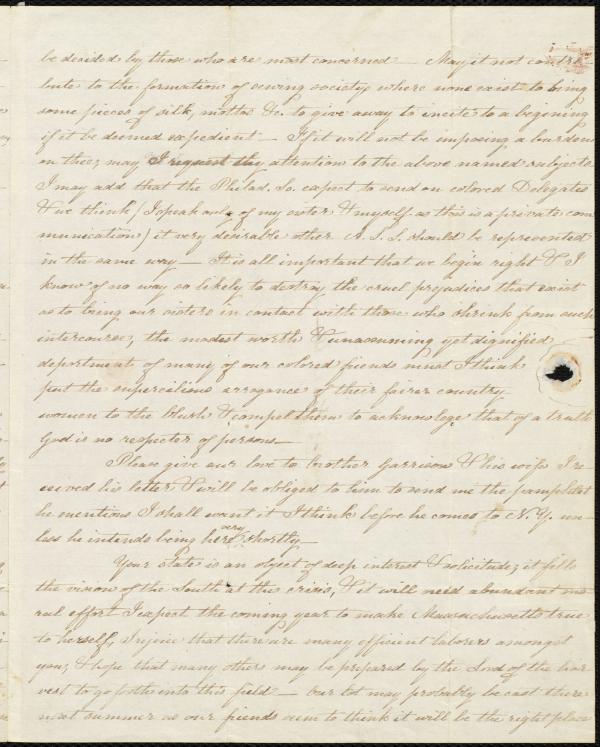 be decided by those who are most concerned — May it not contri
bute to the formation of sewing society where none exist to bring
some pieces of silk, mottos &c. to give away to incite to a begining
if it be deemed expedient — If it will not be imposing a burden
on thee, may I request thy attention to the above named subjects
I may add that the Philad. So. expect to send on colored Delegates
& we think (I speak only of my sister & myself as this is a private com
munication) it very desirable other A. S. S. should be represented
in the same way — It is all important that we begin right & I
know of no way so likely to destroy the cruel prejudices that exist
as to bring our sisters in contact with those who shrink from such
intercourse, the modest worth & unassuming yet dignified
department of many of our colored friends must I think
put the supercilious arrogance of their fairer country
women to the blush & compel them to acknowlege that of a truth
God is no respecter of persons —
Please give our love to brother Garrison & his wife I re
ceived his letter & will be obliged to him to send me the pamphlet
he mentions I shall want it I think before he comes to N.Y. un
less he intends being here very shortly —
Your state is an object of deep interest & solicitude; it fills
the vision of the South at this crisis, & it will need abundant mo
ral effort I expect the coming year to make Massachusetts true
to herself, I rejoice that there are many efficient laborers amongst
you, & hope that many others may be prepared by the Lord of the har
vest to go forth into this field — Our lot may probably be cast there
next summer as our friends seem to think it will be the right place